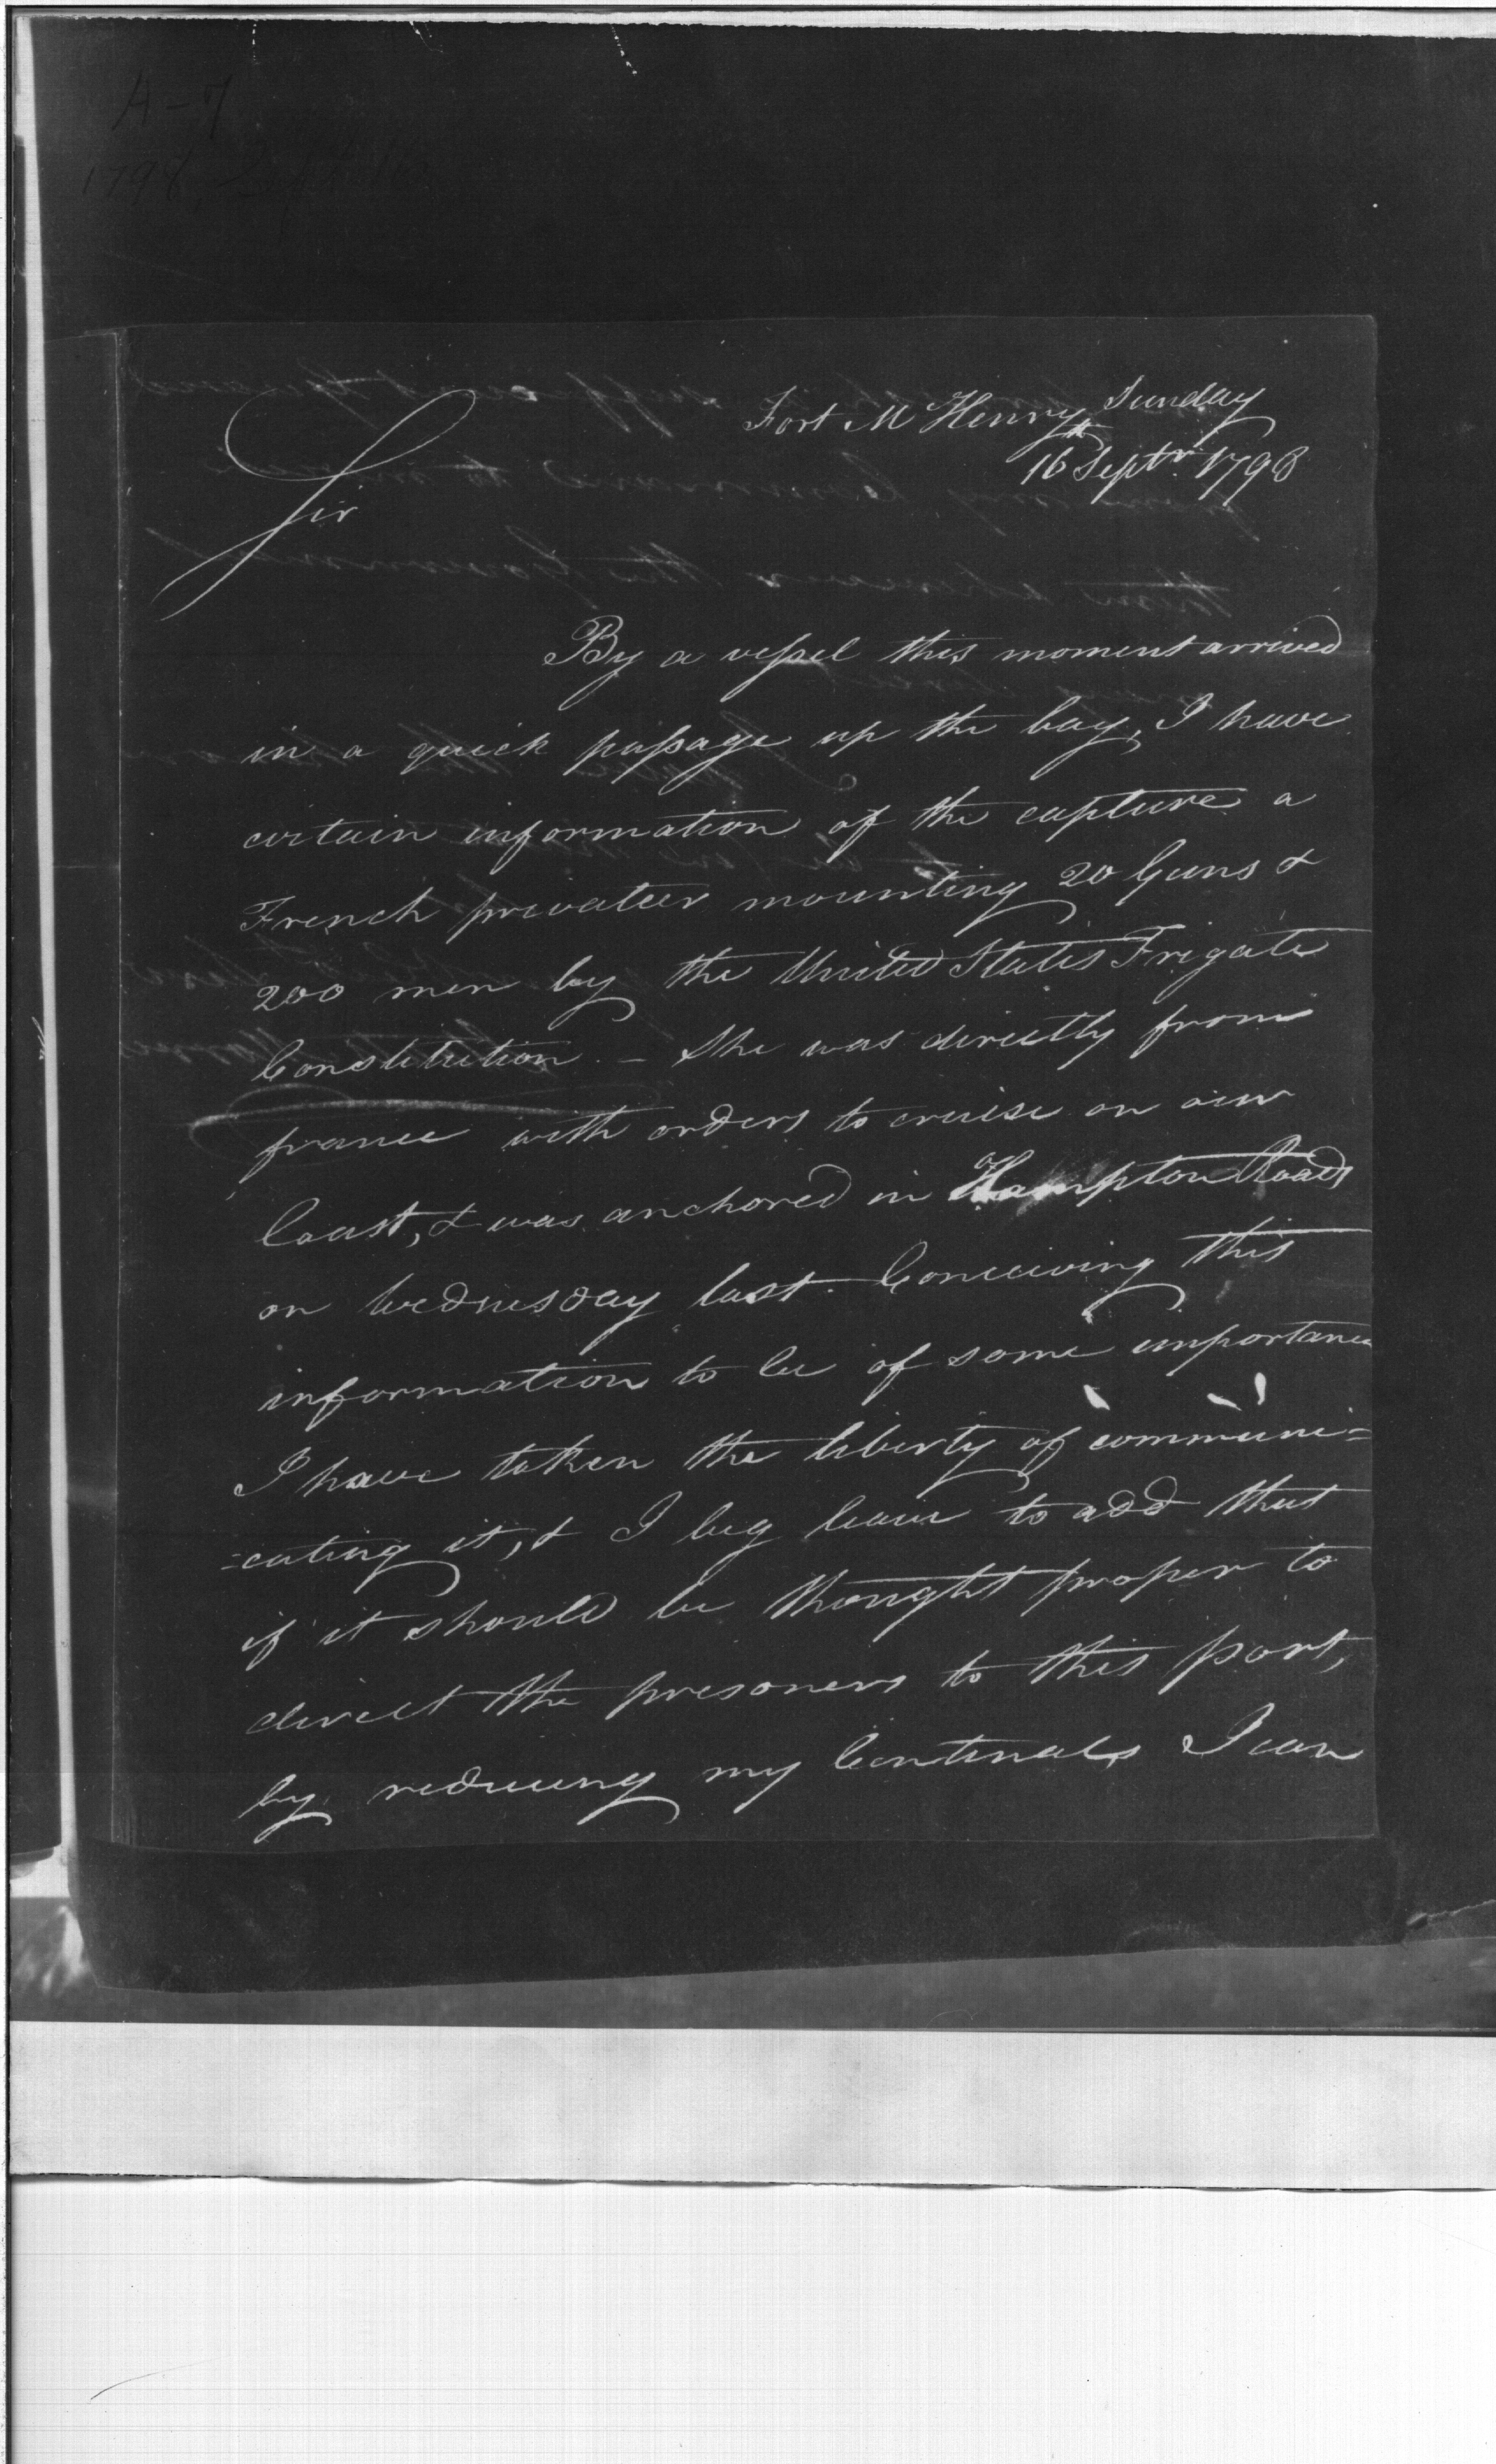 A-7
1798,
Fort McHenry Sunday
16th Septr 1798
Sir
By a vessel this moment arrived
in a quick passage up the bay, I have
certain information of the capture a
French privateer mounting 20 Guns &
200 men by the United States Frigate
Constitution - She was directly from
france with orders to cruise on our
Coast, & was anchored in Hampton Roads
on Wednesday last. Conceiving this
information to be of some importance
I have taken the liberty of communi=
=cating it, & I beg leave to add that
if it should be thought proper to
direct the prisoners to this port,
by reducing my Centinals I can